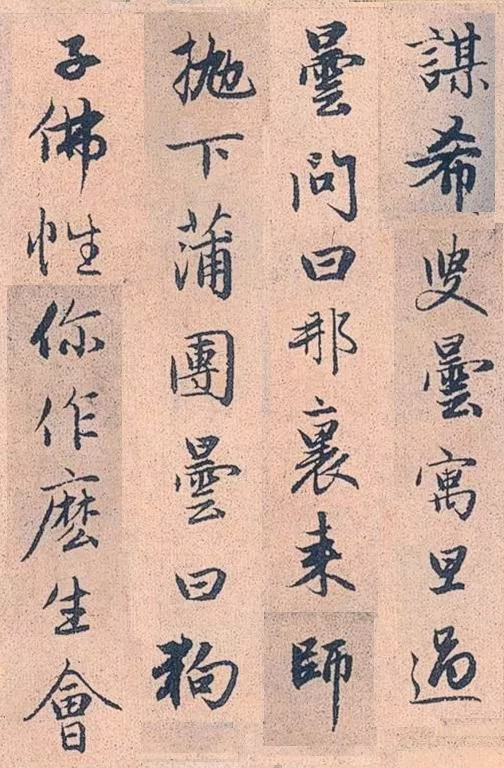 謀希叟曇寓旦過
曇問曰那裏来師
抛下蒲團曇曰狗
子佛性你作麽生會